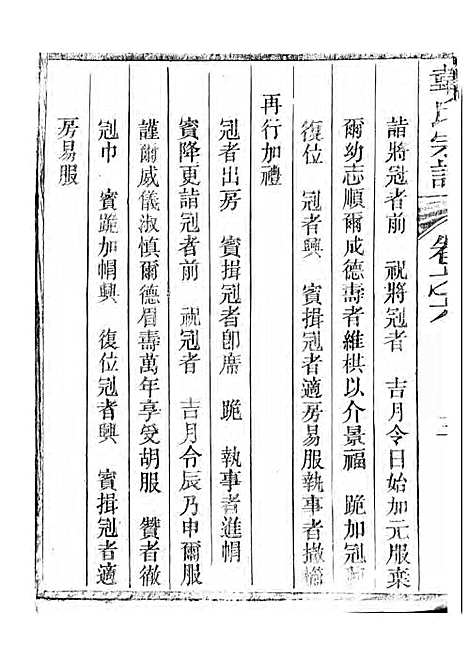 氏宗譜 卷之六 二
詣將冠者前 祝將冠者 吉月令日始加元服棄
爾幼志順爾成德壽者維棋以介景福 跪加冠
復位 冠者興 賓揖冠者適房易服執事者撤櫛
再行加禮
冠者出房 賓揖冠者卽席 跪 執事者進帽
賓降更詣冠者前 祝冠者 吉月令辰乃申爾服
謹爾威儀淑慎爾德眉壽萬年享受胡服 贊者徹
冠巾 賓跪加帽興 復位冠者興 賓揖冠者適
房易服